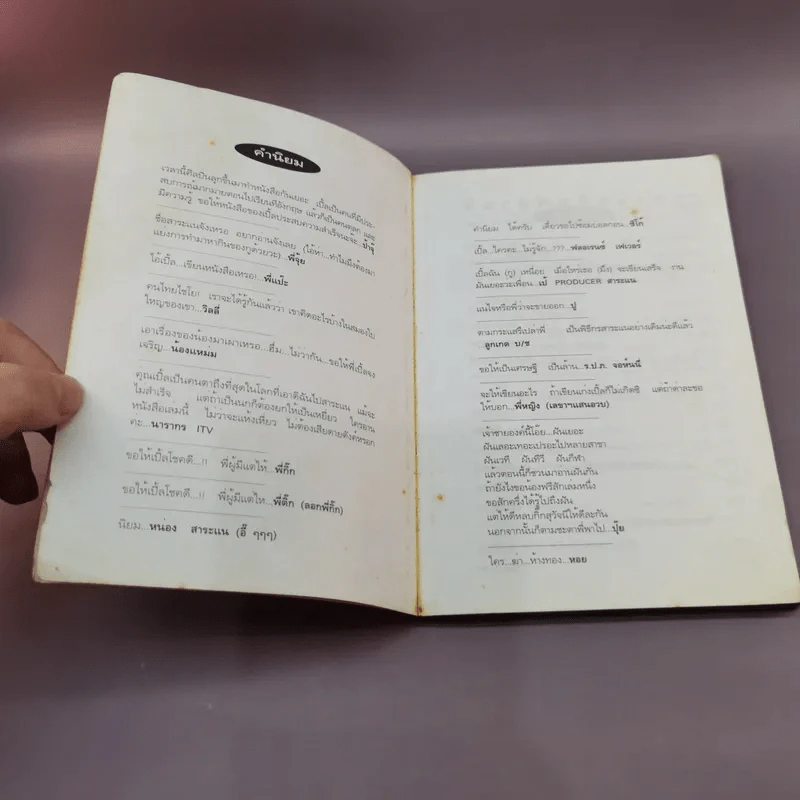 คำนิยม
เวลานี้ศิลปินลุกขึ้นมาทำหนังสือกันเยอะ เปิ้ลเป็นคนที่มีประ-
สบการณ์มากมายตอนไปเรียนที่อังกฤษ แล้วก็เป็นคนตลก และ
มีความรู้ ขอให้หนังสือของเปิ้ลประสบความสำเร็จนะจ๊ะ...ป้าจุ๊
ชื่อสาระแนจังเหรอ อยากอ่านจังเลย (โอ้ฬา!ทำไมมึงต้องมา
แย่งการทำมาหากินของกูด้วยวะ)...พี่จุ้ย
โอ้เปิ้ล...เขียนหนังสือเหรอ!...พี่แป๊ะ
คนไทยไชโย! เราจะได้รู้กันแล้วว่า เขาคิดอะไรบ้างในสมองใบ
ใหญ่ของเขา...วิลลี่
เอาเรื่องของน้องมาเผาเหรอ...ฮึ่ม...ไม่ว่ากัน...ขอให้พี่เปิ้ลจง
เจริญ...น้องแหม่ม
คุณเปิ้ลเป็นคนตาถึงที่สุดในโลกที่เอาดิฉันไปสาระแน แม้จะ
ไม่สำเร็จ แต่ถ้าเป็นนกก็ต้องยกให้เป็นเหยี่ยว ใครอ่าน
หนังสือเล่มนี้ ไม่ว่าจะแห้งเหี่ยว ไม่ต้องเสียดายตังค์หรอก
คะ...นารากร ITV
ขอให้เปิ้ลโชคดี...!! พี่ผู้มีแต่ให้...พี่กิ๊ก
ขอให้เปิ้ลโชคดี...!! พี่ผู้มีแต่ให้...พี่ติ๊ก (ลอกพี่กิ๊ก)
นิยม...หน่อง สาระแน (อี๊ ๆๆๆ)
คำนิยม ได้ครับ เดี๋ยวขอไปซ้อมบอลก่อน...ซิโก้
เปิ้ล...ใครคะ...ไม่รู้จัก...???...ฟลอเรนซ์ เฟเวอร์
เปิ้ลฉัน (กู) เหนื่อย เมื่อไหร่เธอ (มึง) จะเขียนเสร็จ งาน
มันเยอะวะเพื่อน...เป้ PRODUCER สาระแน
แน่ใจหรือพี่ว่าจะขายออก...ปู
ตามกระแสรึเปล่าพี่ เป็นพิธีกรสาระแนอย่างเดิมน่ะดีแล้ว
ลูกเกด บ/ช
ขอให้เป็นเศรษฐี เป็นล้าน...ร.ป.ภ. จอห์นนี่
จะให้เขียนอะไร ถ้าเขียนเก่งเปิ้ลไม่เกิดซิ แต่ถ้าด่าละขอ
ให้บอก...พี่หญิง (เลขาฯแสนอวบ)
เจ้าชายองค์นี้โอ๊ย...ฝันเยอะ
ฝันเลอะเทอะเปรอะไปหลายสาขา
ฝันเวที ฝันทีวี ฝันกีฬา
แล้วตอนนี้ก็ชวนมาอ่านฝันกัน
ถ้ายังไงขอน้องฟรีสักเล่มหนึ่ง
ขอสักครึ่งได้รู้ไปถึงฝัน
แต่ให้ดีหลบกิ๊กสุวัจนีให้ดีละกัน
นอกจากนั้นก็ตามชะตาพี่พาไป...ปุ้ย
ใคร...ฆ่า...ห้างทอง...หอย